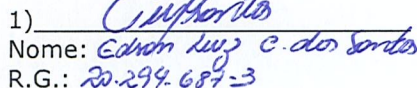 1)
Nome: Edson Luiz C. dos Santos
R.G.: 20.294.687-3